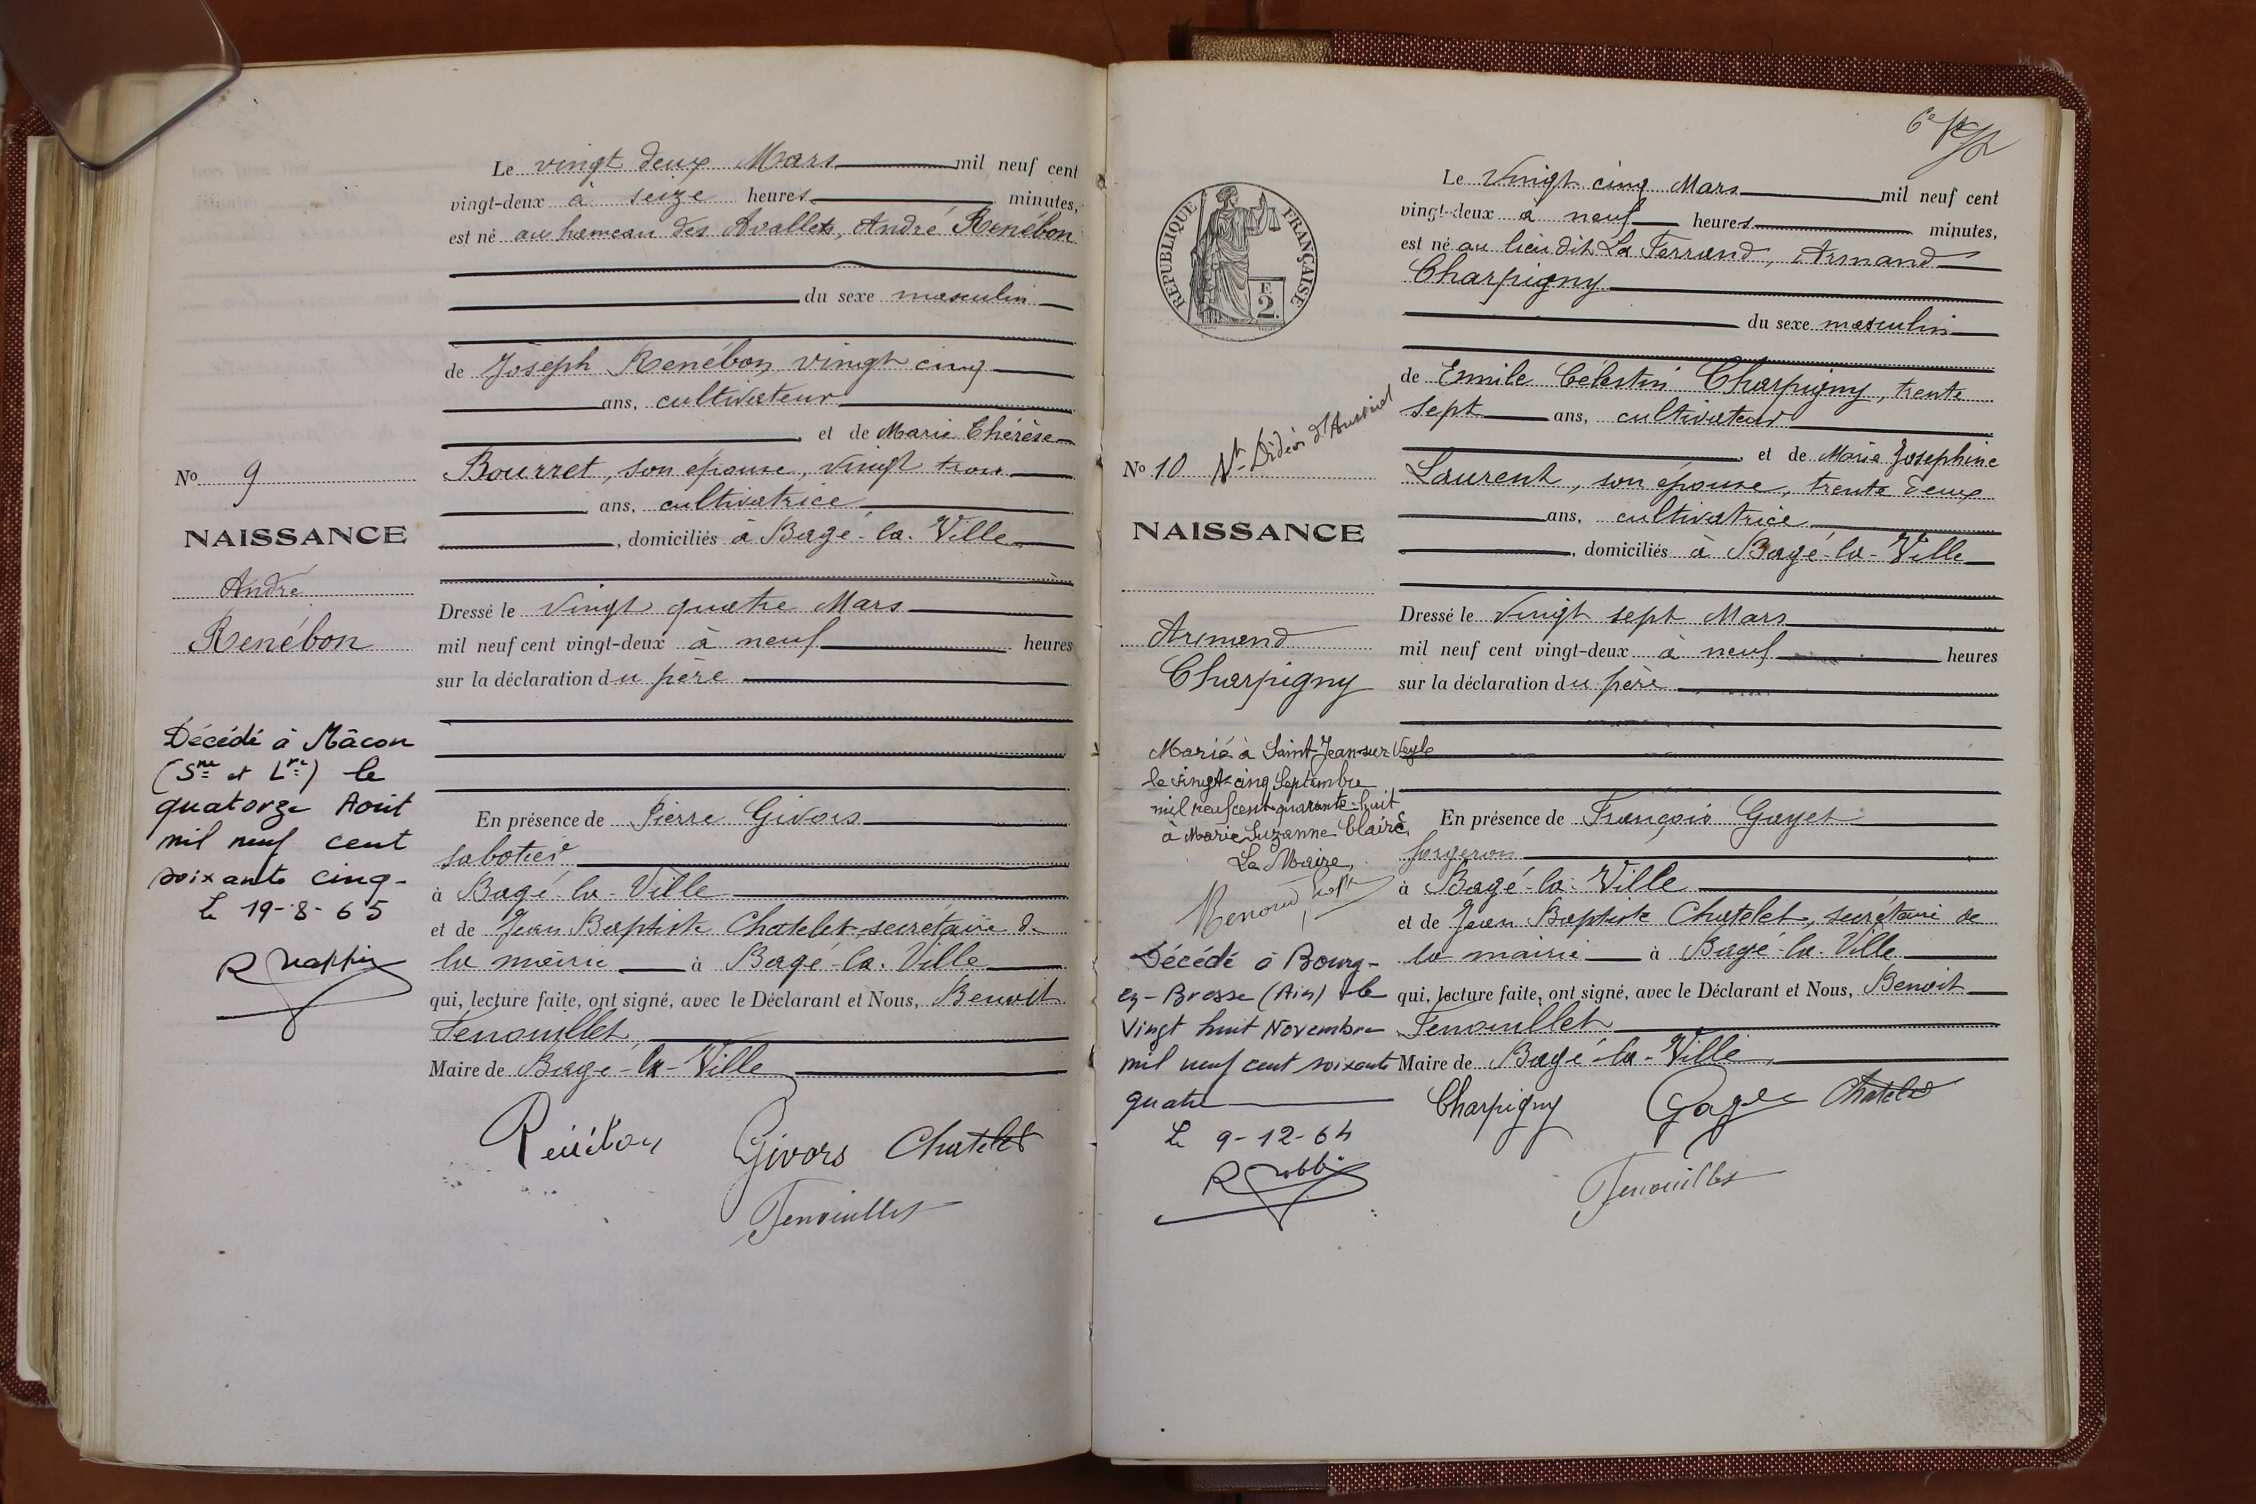 Le vingt deux Mars mil neuf cent
vingt-deux à seize heures minutes,
est né au hameau des Avallets, André Renébon
du sexe masculin
de Joseph Renébon vingt cinq
ans, cultivateur
et de Marie Thérèse
Bourret, son épouse, vingt trois
ans, cultivatrice
, domiciliés à Bagé-la-Ville
Dressé le vingt quatre Mars
mil neuf cent vingt-deux à neuf heures
sur la déclaration du père
En présence de Pierre Givors
sabotier
à Bagé-la-Ville
et de Jean Baptiste Chatelet secrétaire de
la mairie à Bagé-la-Ville
qui, lecture faite, ont signé, avec le Déclarant et Nous, Benoit
Fenouillet,
Maire de Bagé-la-Ville
Renébon Givors Chatelet
Fenouillet
No 9
NAISSANCE
André
Renébon
Décédé à Mâcon
(Sne et Lre) le
quatorze Août
mil neuf cent
soixante cinq-
Le 19-8-65
6e
RÉPUBLIQUE FRANÇAISE
F.
2.
Le Vingt cinq Mars mil neuf cent
vingt-deux à neuf heures minutes,
est né au lieu dit La Ferrand, Armand
Charpigny
du sexe masculin
de Emile Célestin Charpigny, trente
sept ans, cultivateur
et de Marie Josephine
Laurent, son épouse, trente deux
ans, cultivatrice
, domiciliés à Bagé-la-Ville
Dressé le Vingt sept Mars
mil neuf cent vingt-deux à neuf heures
sur la déclaration du père
En présence de François Gayet
forgeron
à Bagé-la-Ville
et de Jean Baptiste Chatelet, secrétaire de
la mairie à Bagé-la-Ville
qui, lecture faite, ont signé, avec le Déclarant et Nous, Benoit
Fenouillet
Maire de Bagé-la-Ville,
Charpigny Gayet Chatelet
Fenouillet
No 10 St-Didier d'Aussiat
NAISSANCE
Armand
Charpigny
Marié à Saint-Jean-sur-Veyle
le vingt-cinq Septembre
mil neuf cent quarante-huit
à Marie Suzanne Claire
Le Maire,
Renoud
Décédé à Bourg-
en-Bresse (Ain) le
Vingt huit Novembre
mil neuf cent soixante
quatre
Le 9-12-64